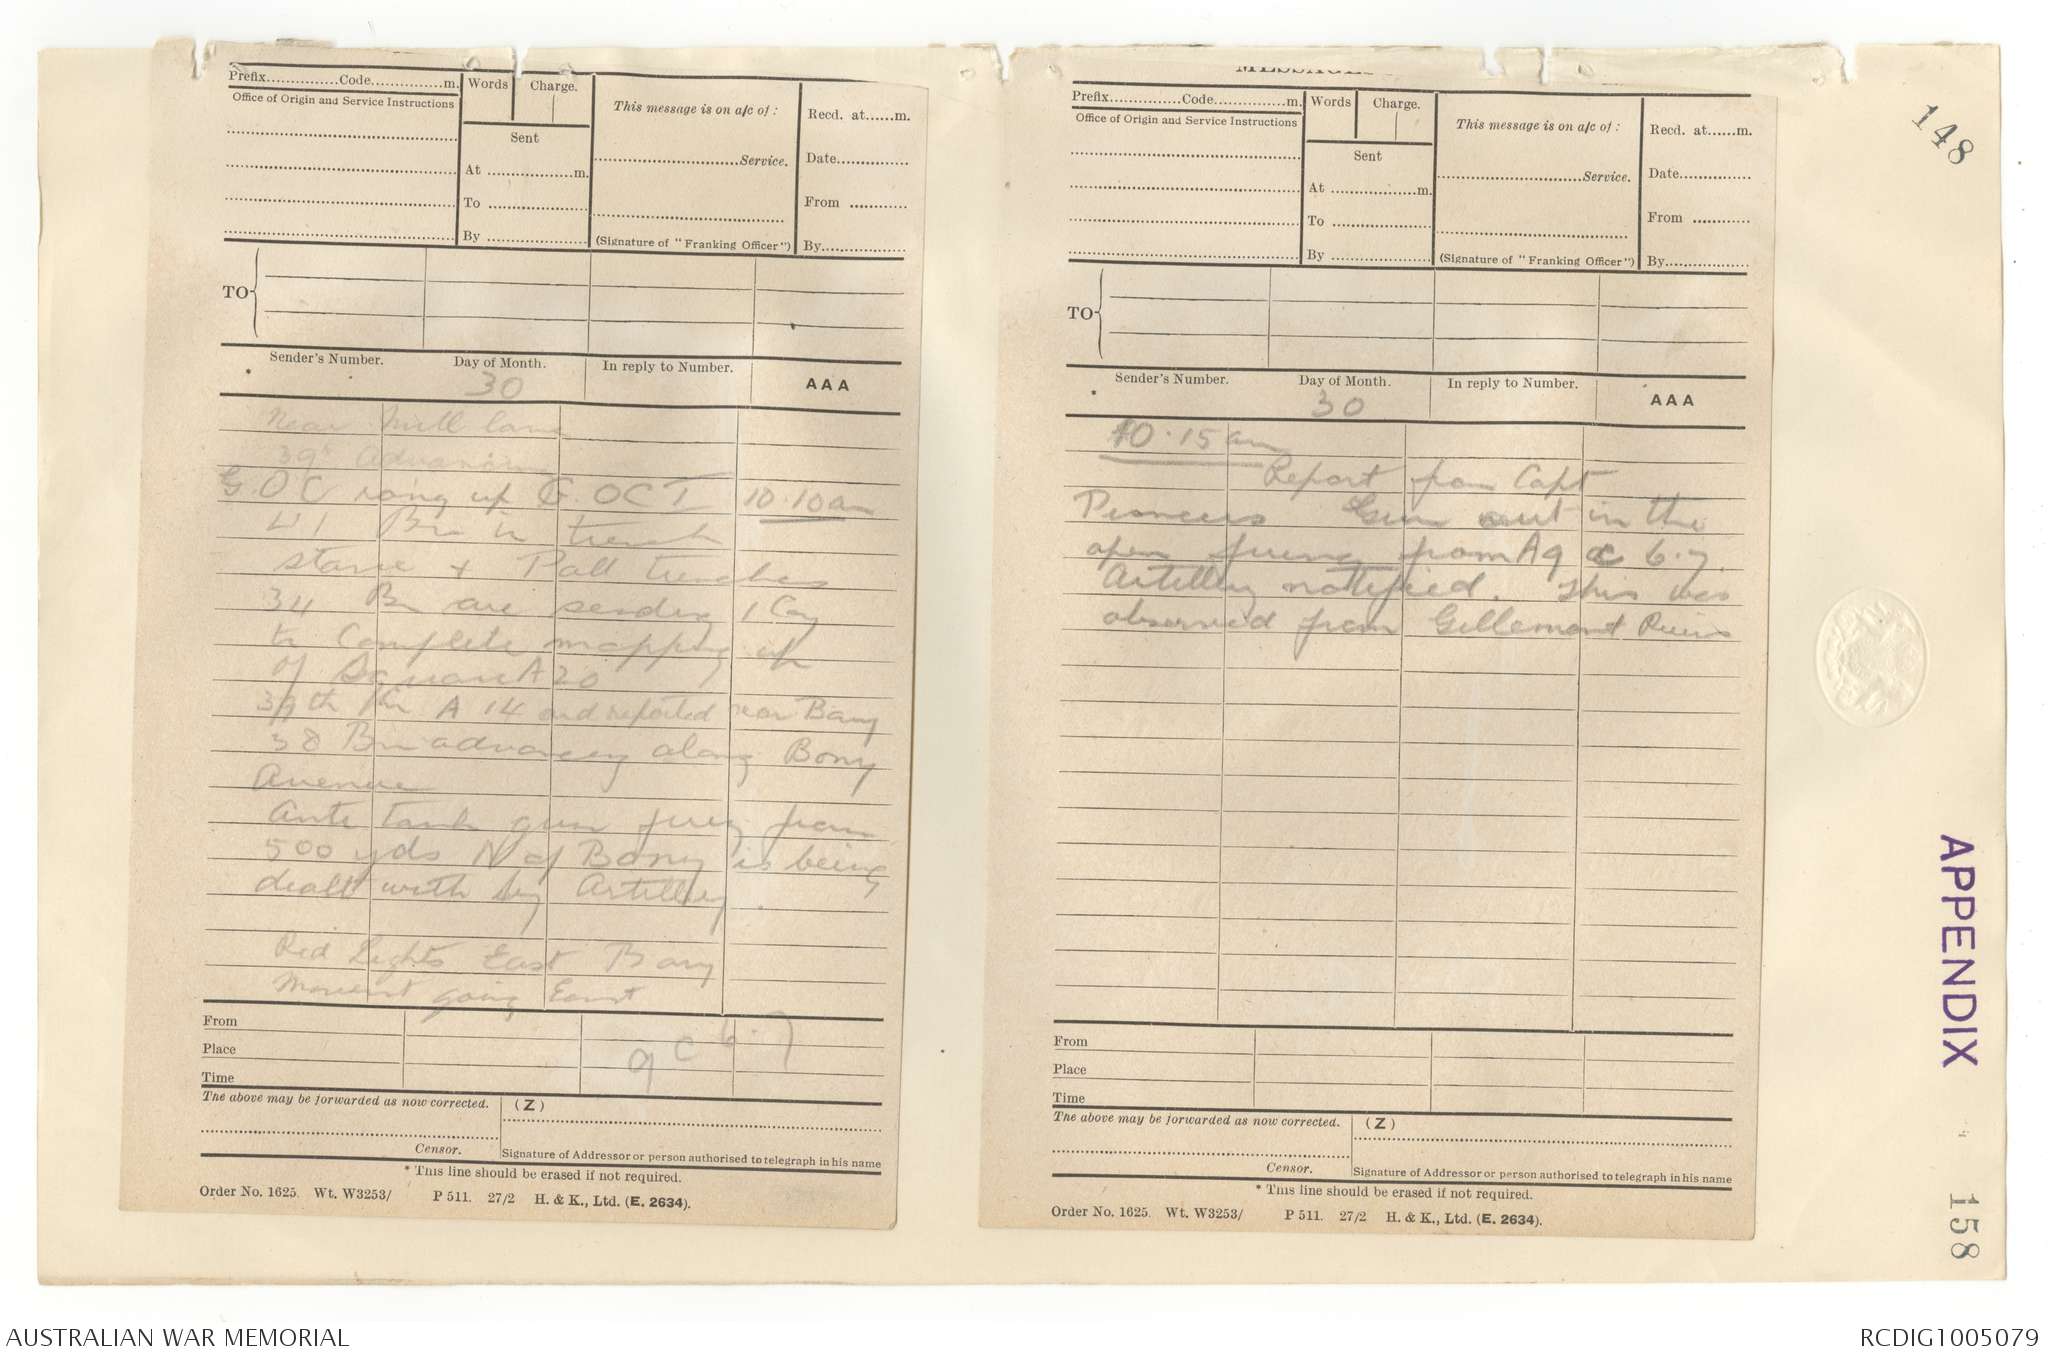 Prefix...............Code................m.
Office of Origin and Service Instructions
Words
Charge.
Sent
At ....................m.
To ........................
By ........................
This message is on a/c of :
................................Service.
(Signature of "Franking Officer")
Recd. at......m.
Date................
From ............
By...................
TO
Sender's Number.
Day of Month.
30
In reply to Number.
AAA
Near Mill lane
39th Advancing
G.O.C rang up G.OCI 10.10am
41 Bn in trench
+ Pall trenches
34 Bn are sending 1 Coy
to Complete mopping up
of Square A20
39th in A 14 and reported near Bony
38 Bn advancing along Bony
Avenue
Anti tank gun firing from
500 yds N of Bony is being
dealt with by Artillery.
Red Lights East Bony
Movement going East
From
Place
Time
9 c 6.7
The above may be forwarded as now corrected.
(Z)
Censor.
Signature of Addressor or person authorised to telegraph in his name
* This line should be erased if not required.
Order No. 1625. Wt. W3253/ P 511. 27/2 H. & K., Ltd. (E. 2634).
Prefix...............Code................m.
Office of Origin and Service Instructions
Words
Charge.
Sent
At ....................m.
To ........................
By ........................
This message is on a/c of :
................................Service.
(Signature of "Franking Officer")
Recd. at......m.
Date................
From ............
By...................
TO
Sender's Number.
Day of Month.
30
In reply to Number.
AAA
10.15 am
Report from Capt
Pioneers Gun out in the
open firing from A9 c 6.7.
Artillery notified. This was
observed from Gillemont Ruins
From
Place
Time
The above may be forwarded as now corrected.
(Z)
Censor.
Signature of Addressor or person authorised to telegraph in his name
* This line should be erased if not required.
Order No. 1625. Wt. W3253/ P 511. 27/2 H. & K., Ltd. (E. 2634).
148
APPENDIX
158
AUSTRALIAN WAR MEMORIAL
RCDIG1005079